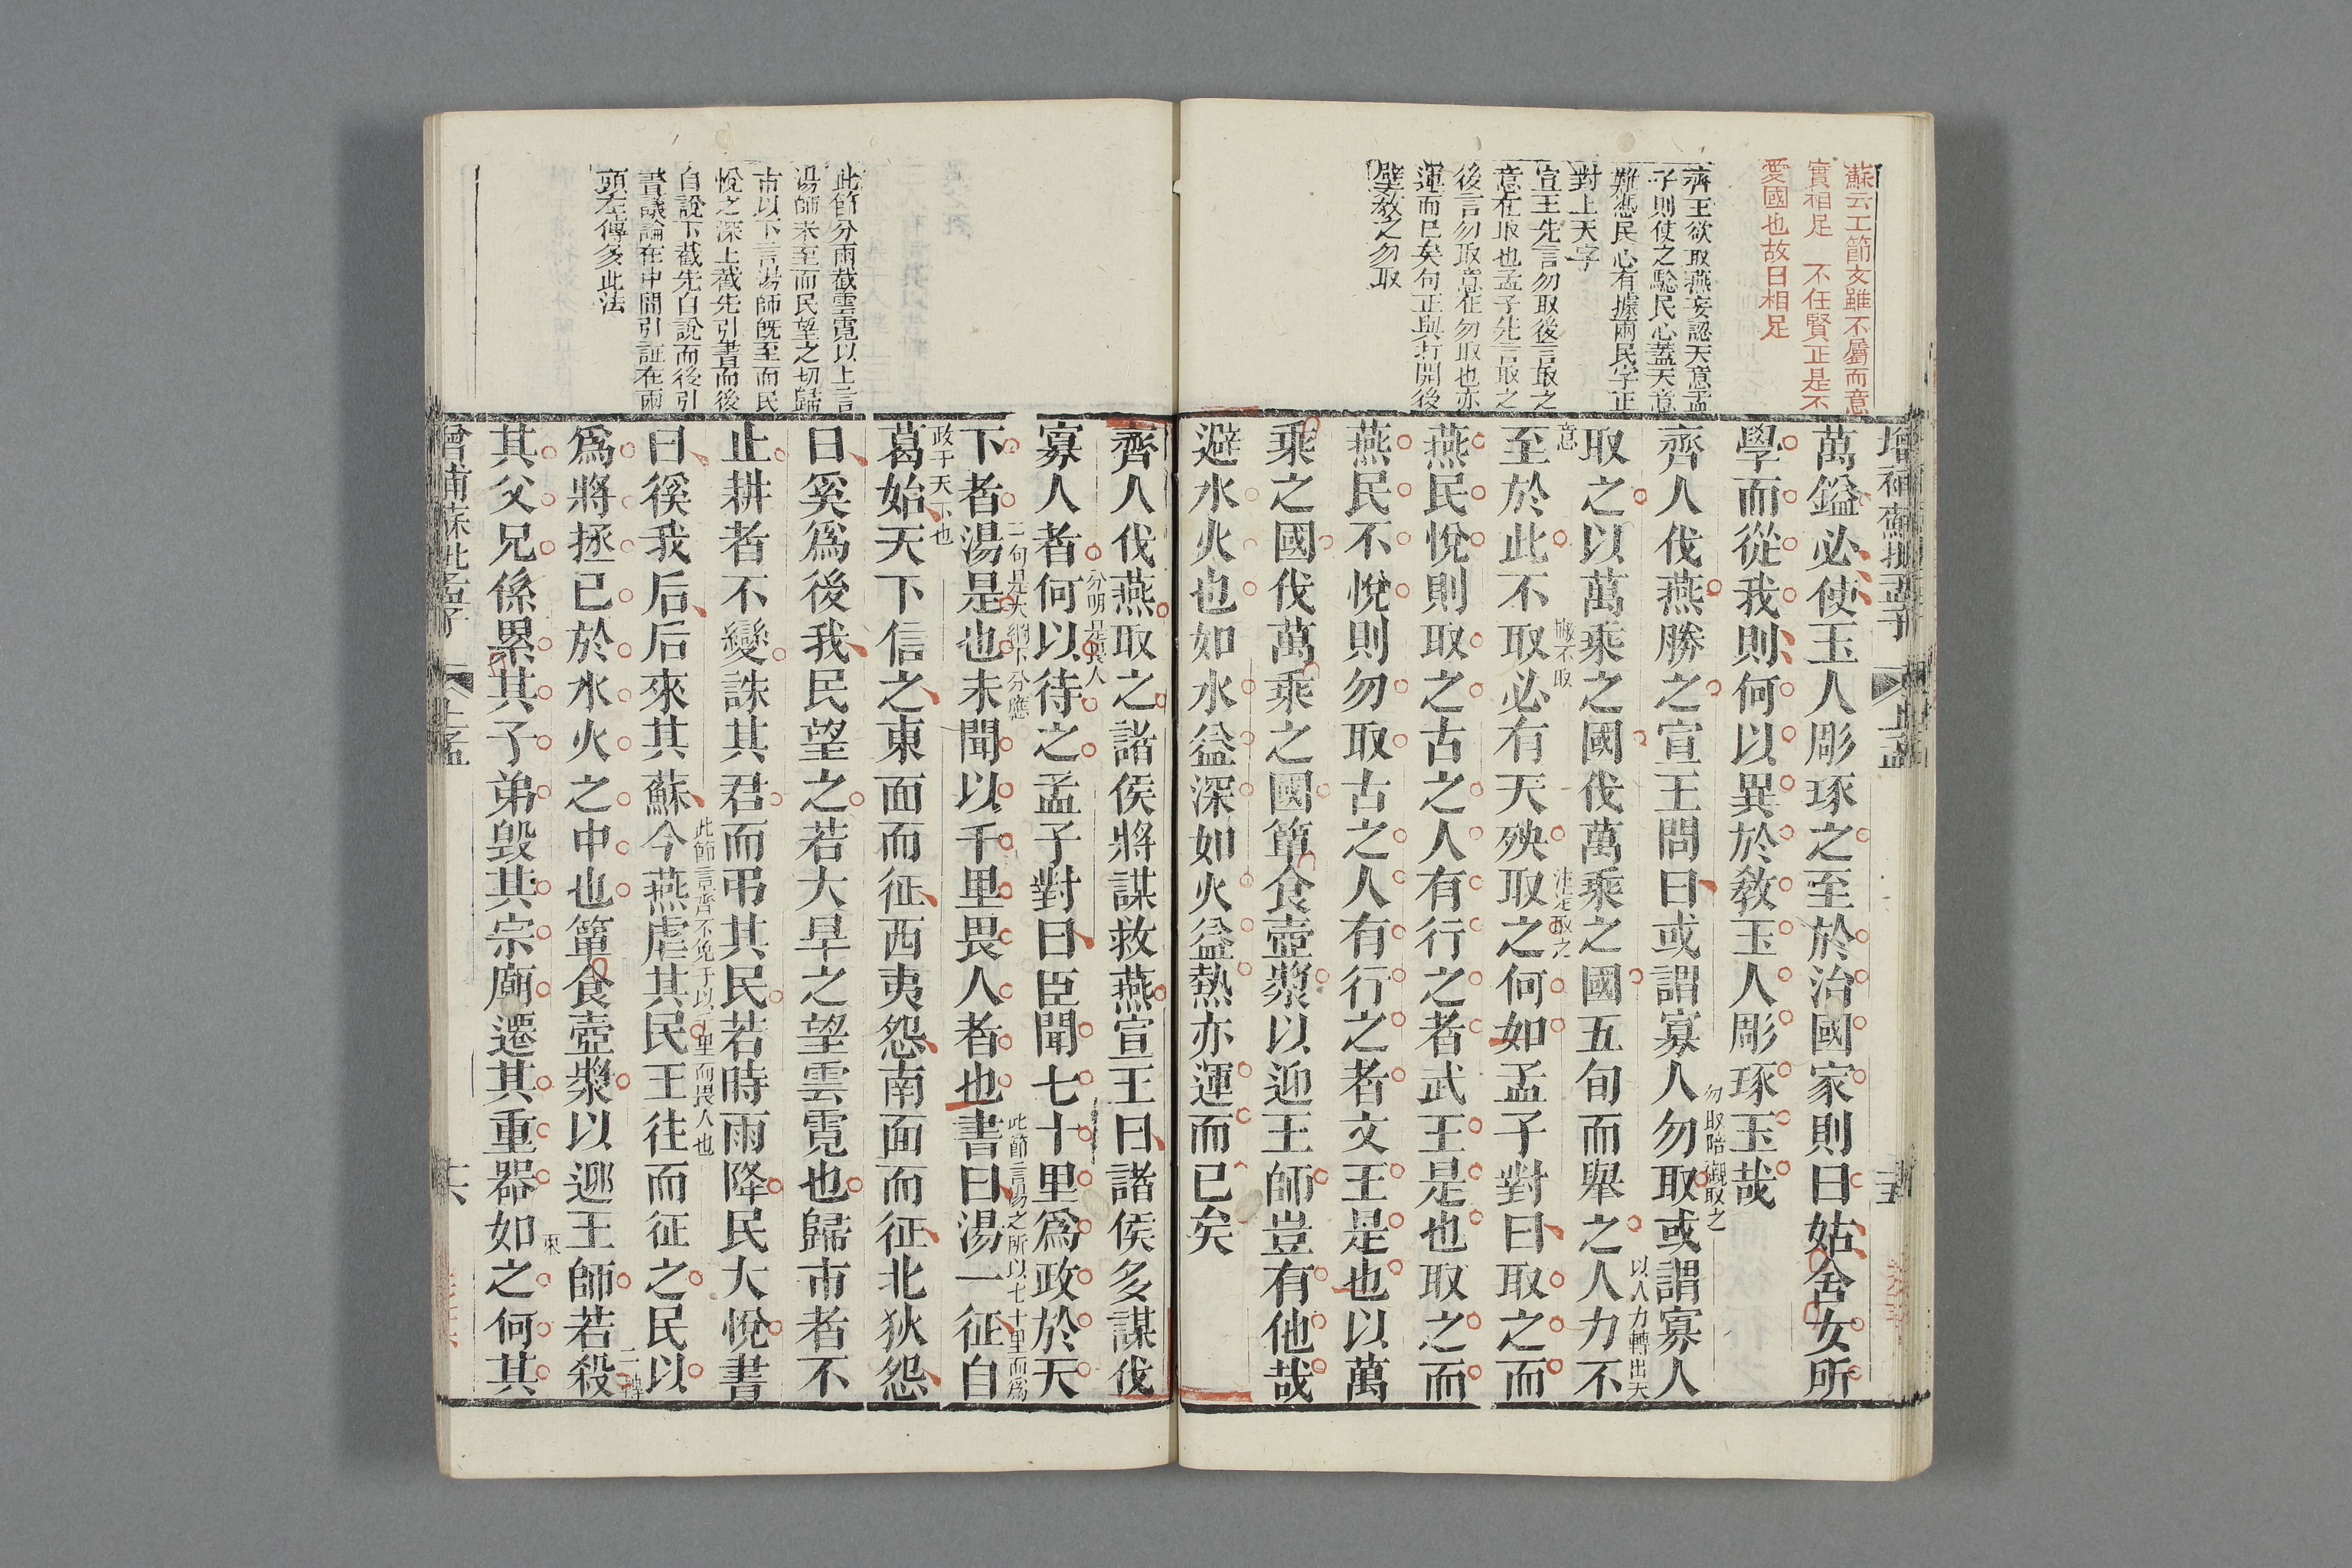 蘇云工節文雖不屬而意
實相足　不任賢正是不
愛國也故曰相足
齊王欲取燕妄認天意孟
子則使之驗民心蓋天意
難憑民心有據兩民字正
對上天字
宣王先言勿取後言取之
意在取也孟子先言取之
後言勿取意在勿取也亦
運而已矣句正與打開後
壁教之勿取
增補蘇批孟子
上孟
萬鎰必使玉人彫琢之至於治國家則曰姑舍女所
學而從我則何以異於教玉人彫琢玉哉
齊人伐燕勝之宣王問曰或謂寡人勿取或謂寡人
勿取陪襯取之
取之以萬乘之國伐萬乘之國五旬而舉之人力不
以人力轉出天
意
至於此不取必有天殃取之何如孟子對曰取之而
燕民悅則取之古之人有行之者武王是也取之而
燕民不悅則勿取古之人有行之者文王是也以萬
乘之國伐萬乘之國簞食壺漿以迎王師豈有他哉
避水火也如水益深如火益熱亦運而已矣
此節分兩截雲霓以上言
湯師未至而民望之切歸
市以下言湯師既至而民
悅之深上截先引書而後
自說下截先自說而後引
書議論在中間引証在兩
頭左傳多此法
齊人伐燕取之諸侯將謀救燕宣王曰諸侯多謀伐
寡人者何以待之孟子對曰臣聞七十里爲政於天
分明是畏人
下者湯是也未聞以千里畏人者也書曰湯一征自
二句是大綱下分應
此節言湯之所以七十里而爲
政于天下也
葛始天下信之東面而征西夷怨南面而征北狄怨
曰奚爲後我民望之若大旱之望雲霓也歸市者不
止耕者不變誅其君而弔其民若時雨降民大悅書
曰徯我后后來其蘇今燕虐其民王往而征之民以
此節言齊不免于以千里而畏人也
爲將拯己於水火之中也簞食壺漿以迎王師若殺
二轉
其父兄係累其子弟毀其宗廟遷其重器如之何其
東
增補蘇批孟子
上孟
六